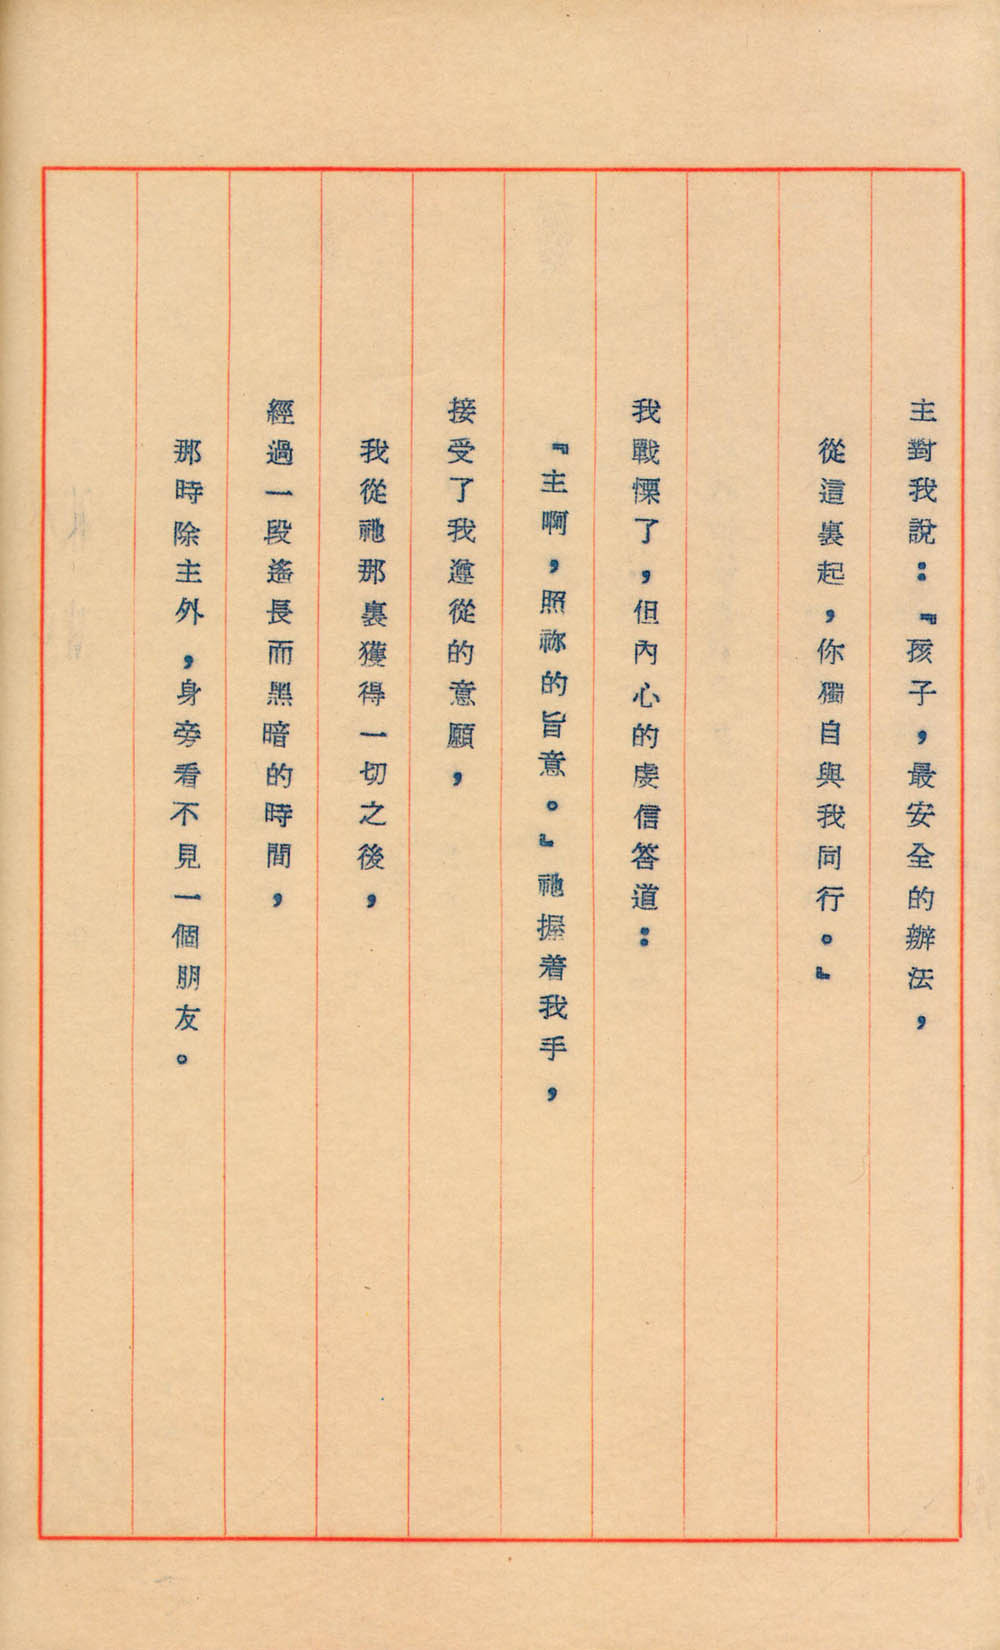 主對我說：『孩子，最安全的辦法，
從這裏起，你獨自與我同行。』
我戰慄了，但內心的虔信答道：
『主啊，照祢的旨意。』祂握着我手，
接受了我遵從的意願，
我從祂那裏獲得一切之後，
經過一段遙長而黑暗的時間，
那時除主外，身旁看不見一個朋友。